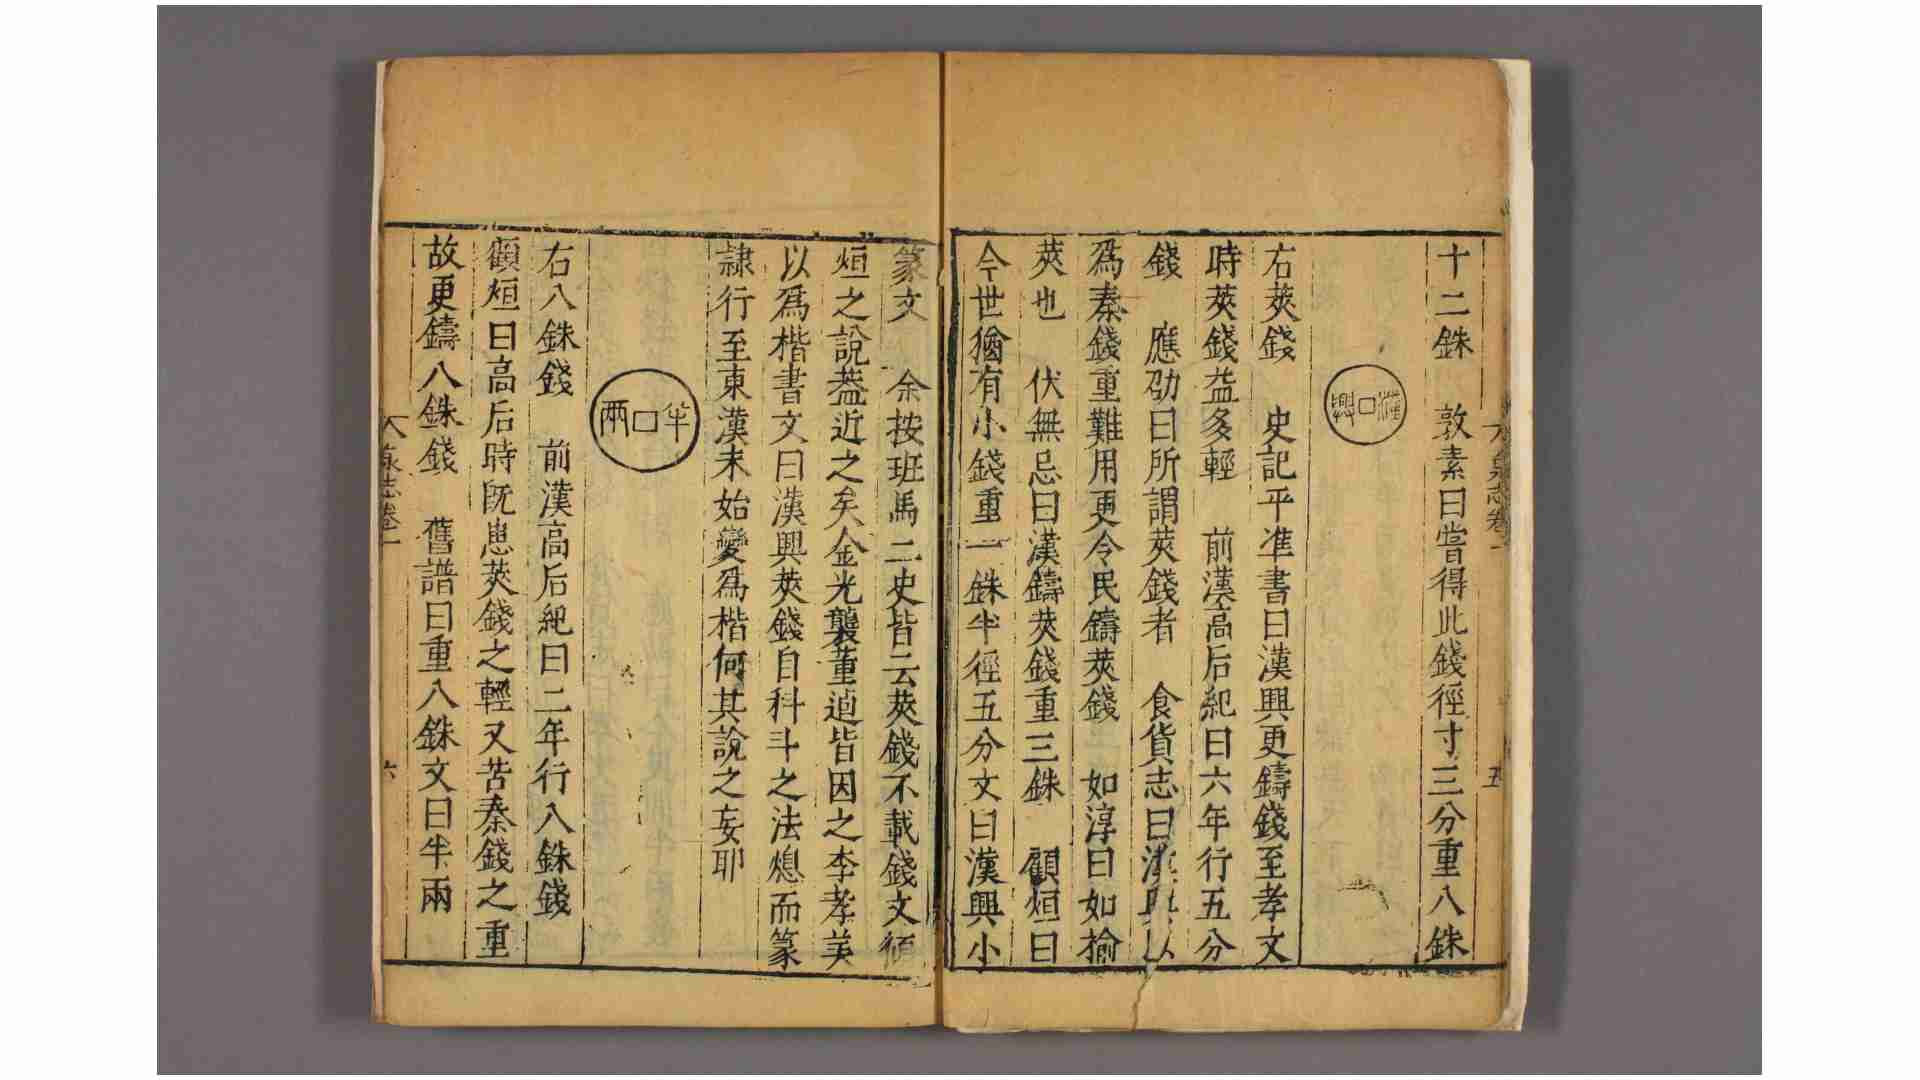 十二銖　敦素曰嘗得此錢徑寸三分重八銖
漢興
右莢錢　史記平準書曰漢興更鑄錢至孝文
時莢錢益多輕　前漢高后紀曰六年行五分
錢　應劭曰所謂莢錢者　食貨志曰漢興以
爲秦錢重難用更令民鑄莢錢　如淳曰如榆
莢也　伏無忌曰漢鑄莢錢重三銖　顧烜曰
今世猶有小錢重一銖半徑五分文曰漢興小
篆文　余按班馬二史皆云莢錢不載錢文顧
烜之說葢近之矣金光襲董逌皆因之李孝美
以爲楷書文曰漢興莢錢自科斗之法熄而篆
隷行至東漢末始變爲楷何其說之妄耶
半兩
右八銖錢　前漢高后紀曰二年行八銖錢
顧烜曰高后時旣患莢錢之輕又苦秦錢之重
故更鑄八銖錢　舊譜曰重八銖文曰半兩
泉志卷一
五
泉志卷一
六